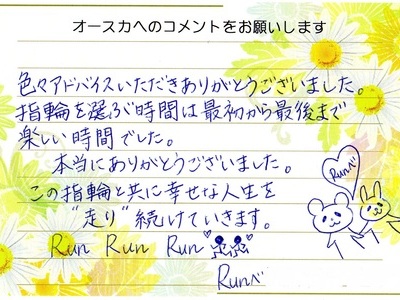 オースカへのコメントをお願いします
色々アドバイスいただきありがとうございました。
指輪を選ぶ時間は最初から最後まで
楽しい時間でした。
本当にありがとうございました。
この指輪と共に幸せな人生を
"走り"続けていきます。
Runべ
Run Run Run
Runべ